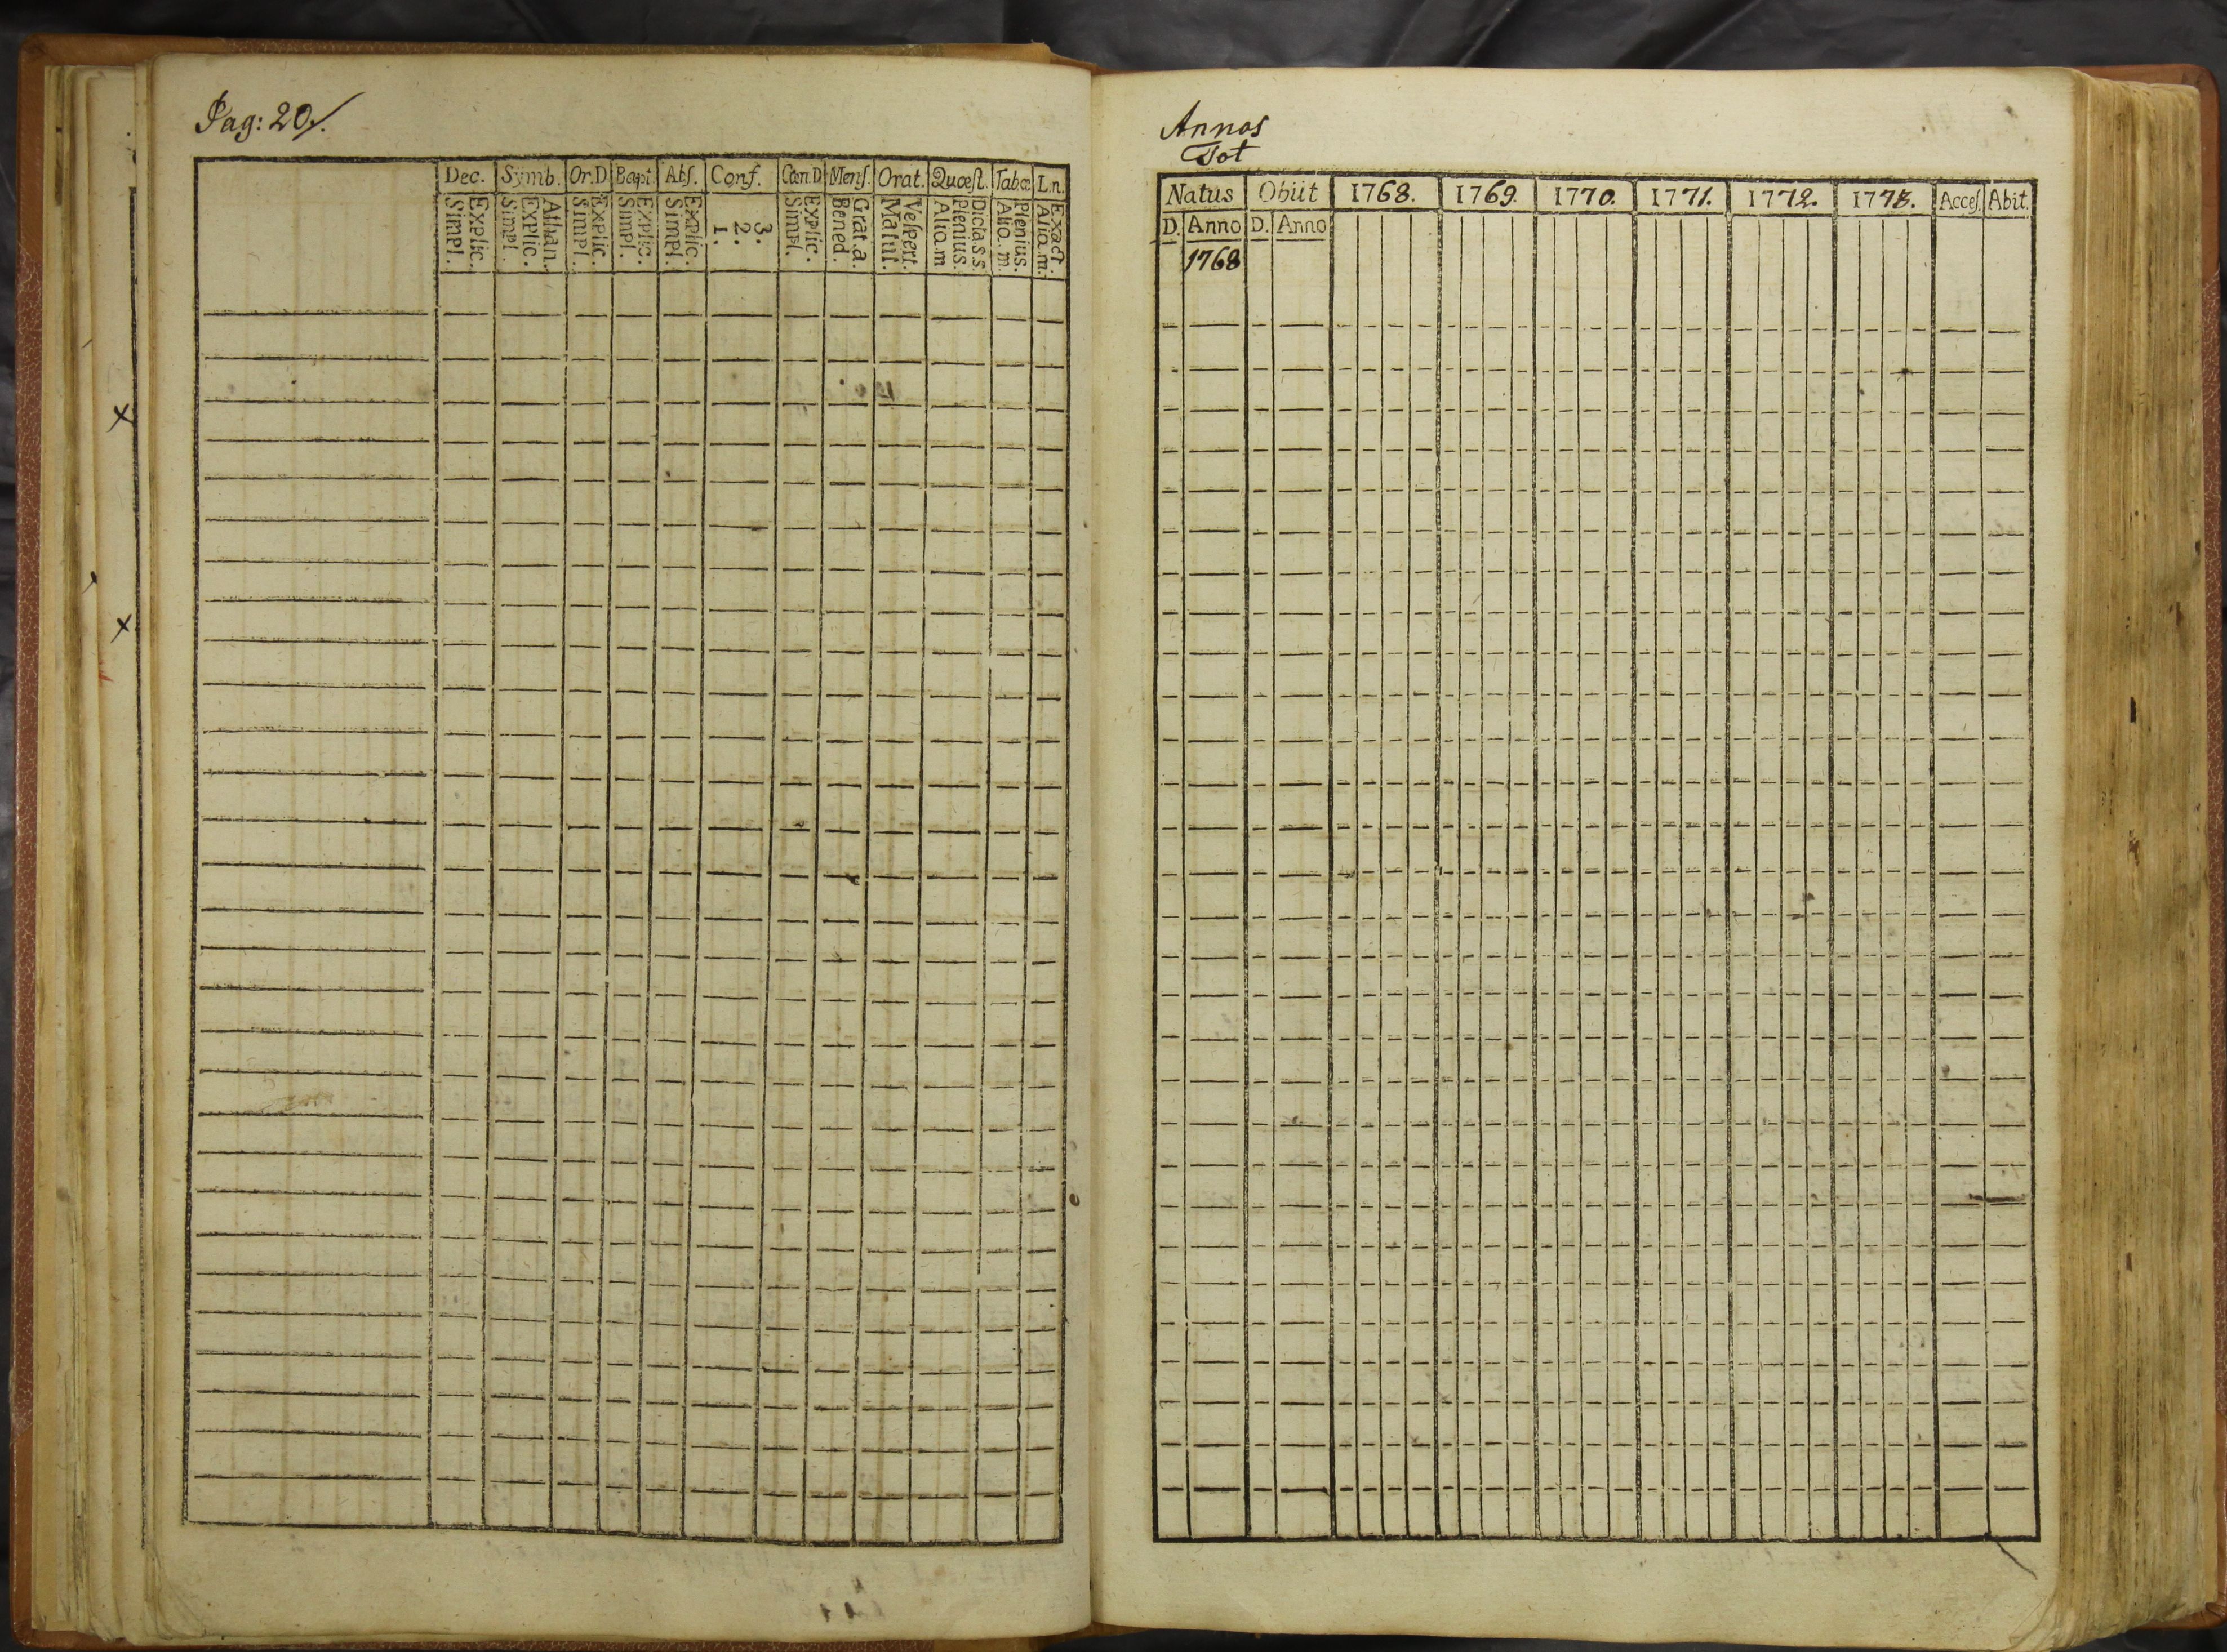 Pag: 20.
Dec. Symb. Or.D Bapt. Abſ. Conf. Cœn.D Menſ. Orat. Quœſt. Tabœ L.n.
Explic. Simpl.
Athan. Explic. Simpl.
Explic. Simpl.
Explic. Simpl.
Explic. Simpl.
3. 2. 1.
Explic. Simpl.
Grat. a. Bened.
Veſpert. Matut.
Dicta.s.s. Plenius. Alio.m
Plenius. Alio.m
Exact. Alia.m.
Annos
Tot
Natus Obiit 1768. 1769. 1770. 1771. 1772. 1773. Acceſ. Abit.
D. Anno D. Anno
1768